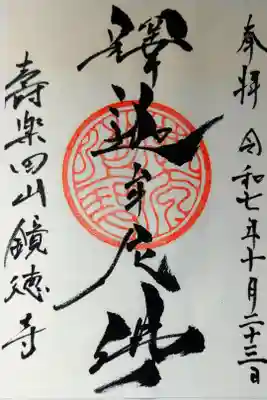 奉拝 令和七年十月二十三日
釋迦牟尼佛
壽楽四山鏡徳寺